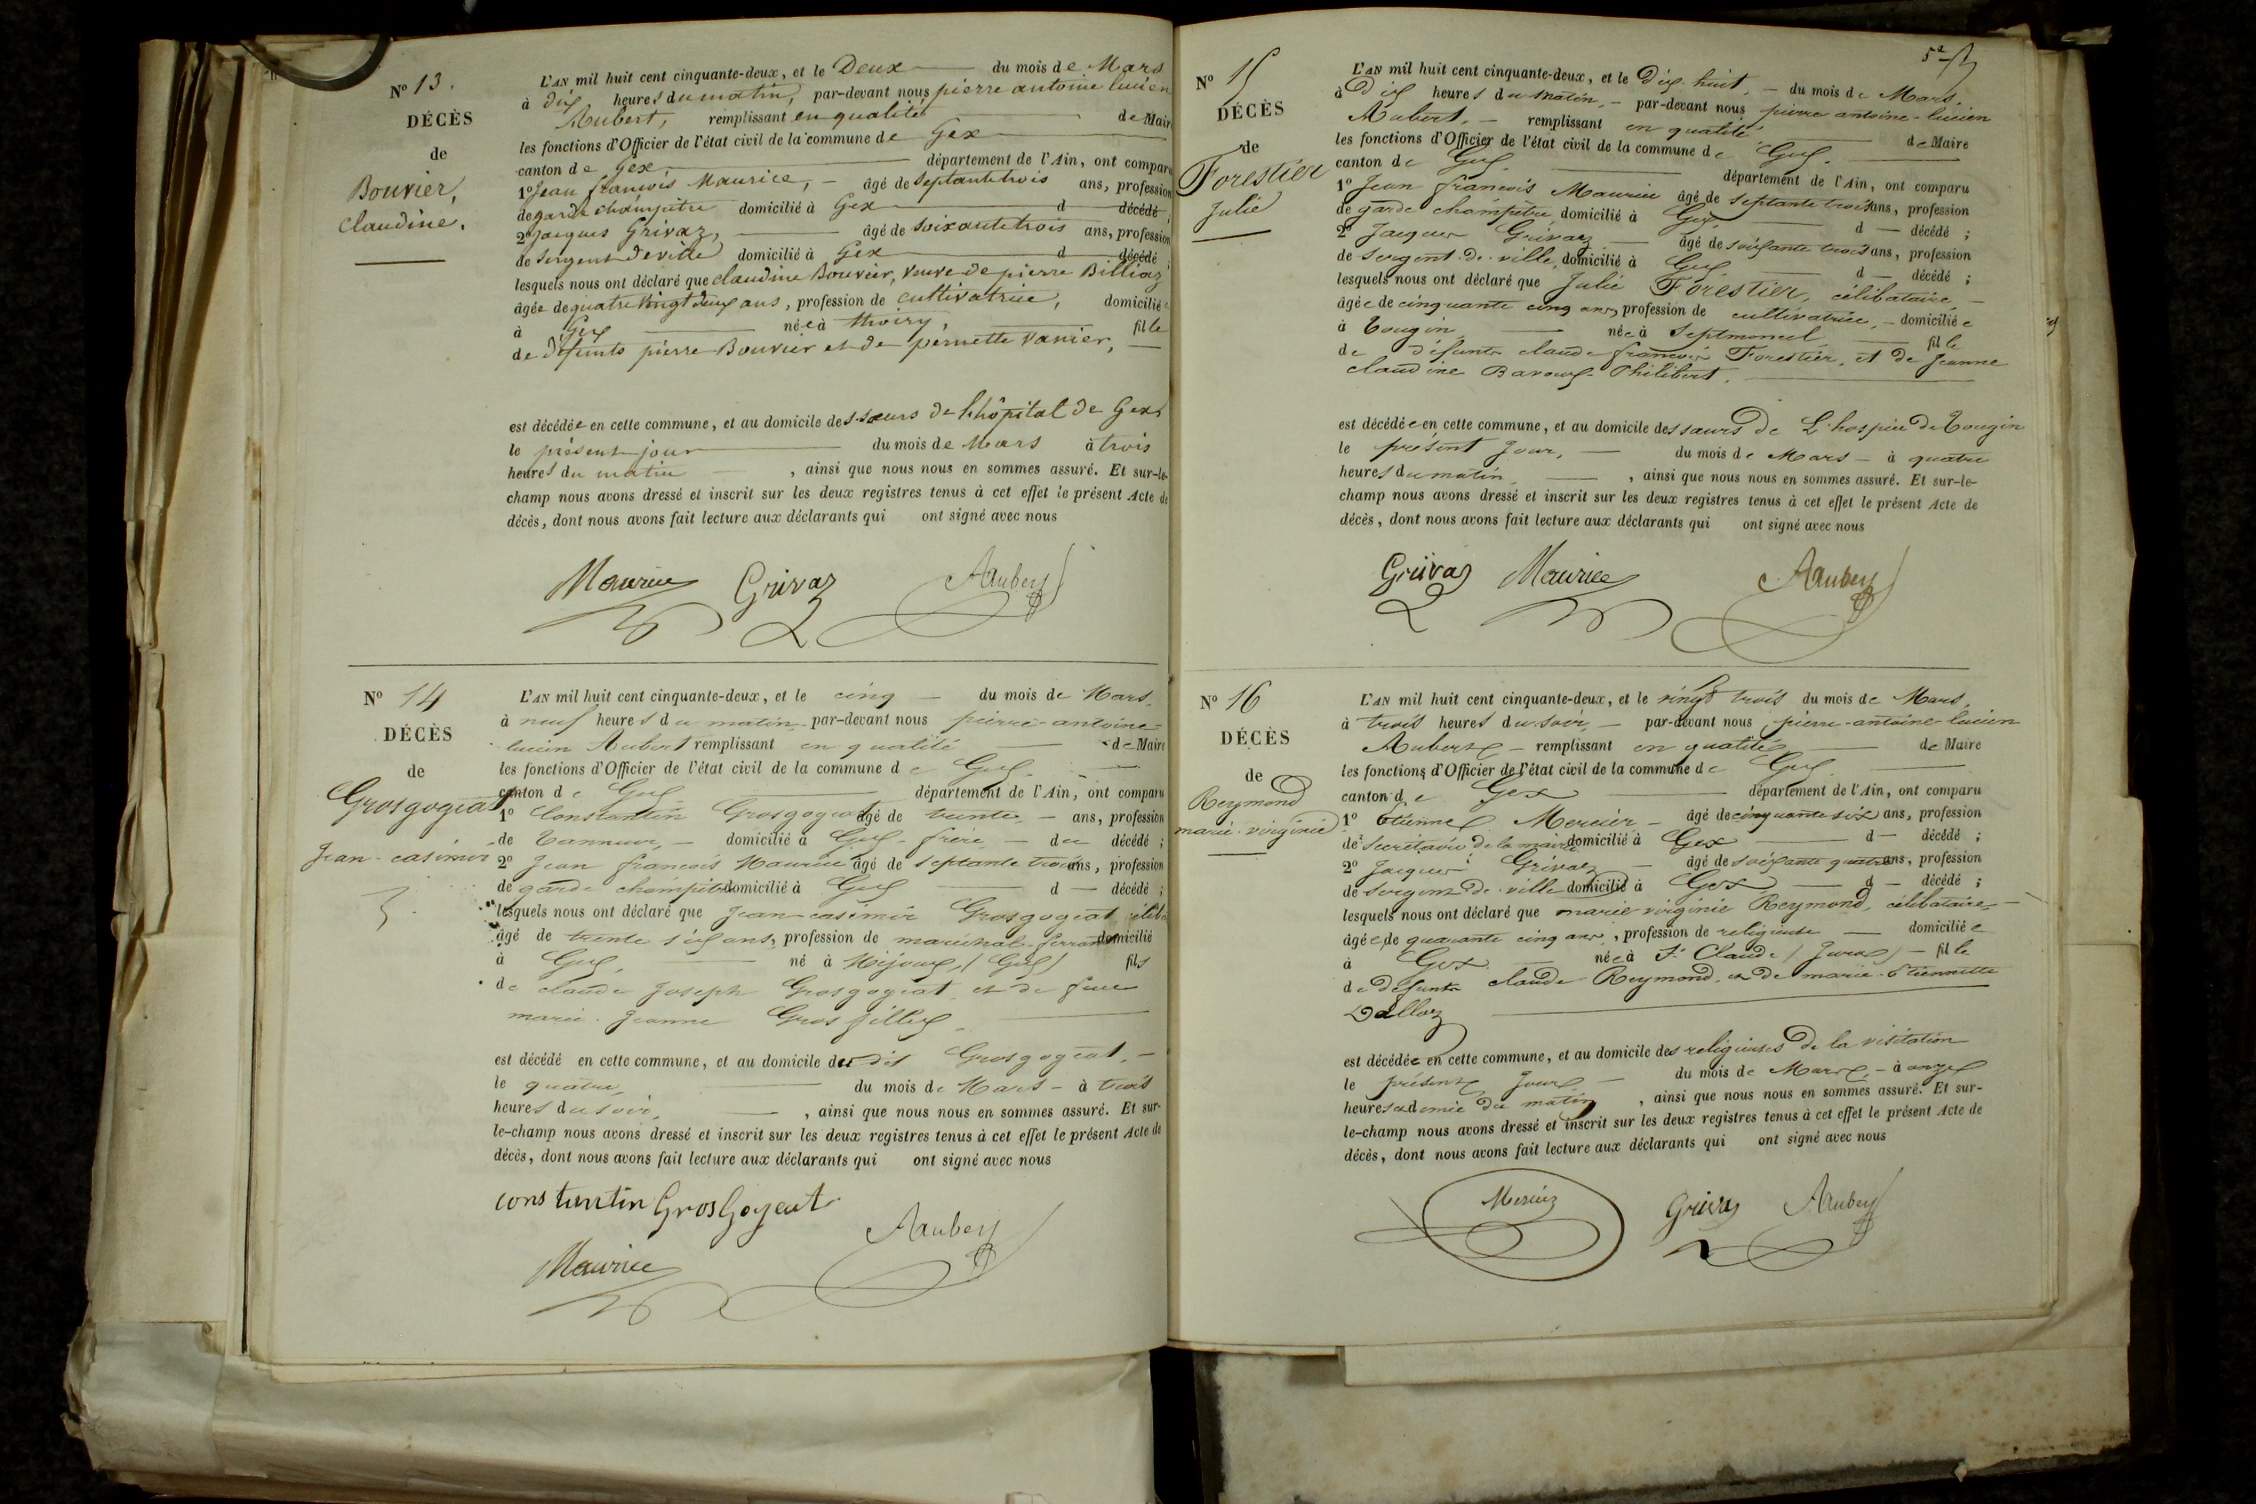 N° 13.
DÉCÈS
de
Bouvier,
Claudine.
L'AN mil huit cent cinquante-deux, et le Deux du mois de Mars
à dix heures du matin, par-devant nous pierre antoine lucien
Aubert, remplissant en qualité de Maire
les fonctions d'Officier de l'état civil de la commune de Gex
canton de Gex département de l'Ain, ont comparu
1° Jean françois Maurice, — âgé de septante trois ans, profession
de garde champêtre domicilié à Gex d décédé ;
2° Jacques Grivaz, âgé de soixante trois ans, profession
de Sergent de ville domicilié à Gex d décédé ;
lesquels nous ont déclaré que claudine Bouvier, veuve de pierre Billiaz
âgée de quatre vingt deux ans, profession de cultivatrice, domiciliée
à Gex née à thoiry, fille
de défunts pierre Bouvier et de pernette Vanier,
est décédée en cette commune, et au domicile des sœurs de l'hôpital de Gex
le présent jour du mois de Mars à trois
heures du matin, ainsi que nous nous en sommes assuré. Et sur-le-
champ nous avons dressé et inscrit sur les deux registres tenus à cet effet le présent Acte de
décès, dont nous avons fait lecture aux déclarants qui ont signé avec nous
Maurice Grivaz AAubert
N° 14
DÉCÈS
de
Grosgogeat
Jean-casimir
L'AN mil huit cent cinquante-deux, et le cinq — du mois de Mars,
à neuf heures du matin, par-devant nous pierre-antoine-
lucien Aubert remplissant en qualité de Maire
les fonctions d'Officier de l'état civil de la commune de Gex.
canton de Gex département de l'Ain, ont comparu
1° Constantin Grosgogeat âgé de trente, — ans, profession
de Tanneur, — domicilié à Gex — frère — du décédé ;
2° Jean françois Maurice âgé de septante trois ans, profession
de garde champêtre domicilié à Gex d — décédé ;
lesquels nous ont déclaré que Jean casimir Grosgogeat célib.
âgé de trente six ans, profession de maréchal-ferrant domicilié
à Gex, né à Mijoux, (Gex) fils
de claude Joseph Grosgogeat et de feue
marie-Jeanne Gros fillex
est décédé en cette commune, et au domicile du dit Grosgogeat, —
le quatre, du mois de Mars — à trois
heures du soir, — , ainsi que nous nous en sommes assuré. Et sur-
le-champ nous avons dressé et inscrit sur les deux registres tenus à cet effet le présent Acte de
décès, dont nous avons fait lecture aux déclarants qui ont signé avec nous
constantin GrosGogeat
Maurice AAubert
N° 15
DÉCÈS
de
Forestier
Julie
L'AN mil huit cent cinquante-deux, et le Dix-huit, — du mois de Mars,
à Dix heures du matin, — par-devant nous pierre antoine-lucien
Aubert, — remplissant en qualité de Maire
les fonctions d'Officier de l'état civil de la commune de Gex.
canton de Gex département de l'Ain, ont comparu
1° Jean françois Maurice âgé de septante trois ans, profession
de garde champêtre, domicilié à Gex d — décédé ;
2° Jacques Grivaz — âgé de soixante trois ans, profession
de sergent-de-ville, domicilié à Gex d — décédé ;
lesquels nous ont déclaré que Julie Forestier, célibataire, —
âgée de cinquante cinq ans, profession de cultivatrice, — domiciliée
à Tougin, née à Septmoncel fille
de défunts claude françois Forestier, et de Jeanne
claudine Bavoux-Philibert.
est décédée en cette commune, et au domicile des sœurs de L'hospice de Tougin
le présent Jour, — du mois de Mars — à quatre
heures du matin, — , ainsi que nous nous en sommes assuré. Et sur-le-
champ nous avons dressé et inscrit sur les deux registres tenus à cet effet le présent Acte de
décès, dont nous avons fait lecture aux déclarants qui ont signé avec nous
Grivaz Maurice AAubert
N° 16
DÉCÈS
de
Reymond
marie-virginie
L'AN mil huit cent cinquante-deux, et le vingt trois du mois de Mars,
à trois heures du soir, — par-devant nous pierre-antoine-lucien
Aubert — remplissant en qualité de Maire
les fonctions d'Officier de l'état civil de la commune de Gex
canton de Gex département de l'Ain, ont comparu
1° Etienne Mercier — âgé de cinquante six ans, profession
de secrétaire de la mairie domicilié à Gex d — décédé ;
2° Jacques Grivaz — âgé de soixante quatre ans, profession
de sergent-de-ville domicilié à Gex d — décédé ;
lesquels nous ont déclaré que marie virginie Reymond, célibataire, —
âgée de quarante cinq ans, profession de religieuse — domiciliée
à Gex née à St Claude (Jura) — fille
de défunts claude Reymond et de marie-Etiennette
Dalloz
est décédée en cette commune, et au domicile des religieuses de la visitation
le présent Jour — du mois de Mars, — à onze
heures et demie du matin, ainsi que nous nous en sommes assuré. Et sur-
le-champ nous avons dressé et inscrit sur les deux registres tenus à cet effet le présent Acte de
décès, dont nous avons fait lecture aux déclarants qui ont signé avec nous
Mercier Grivaz AAubert